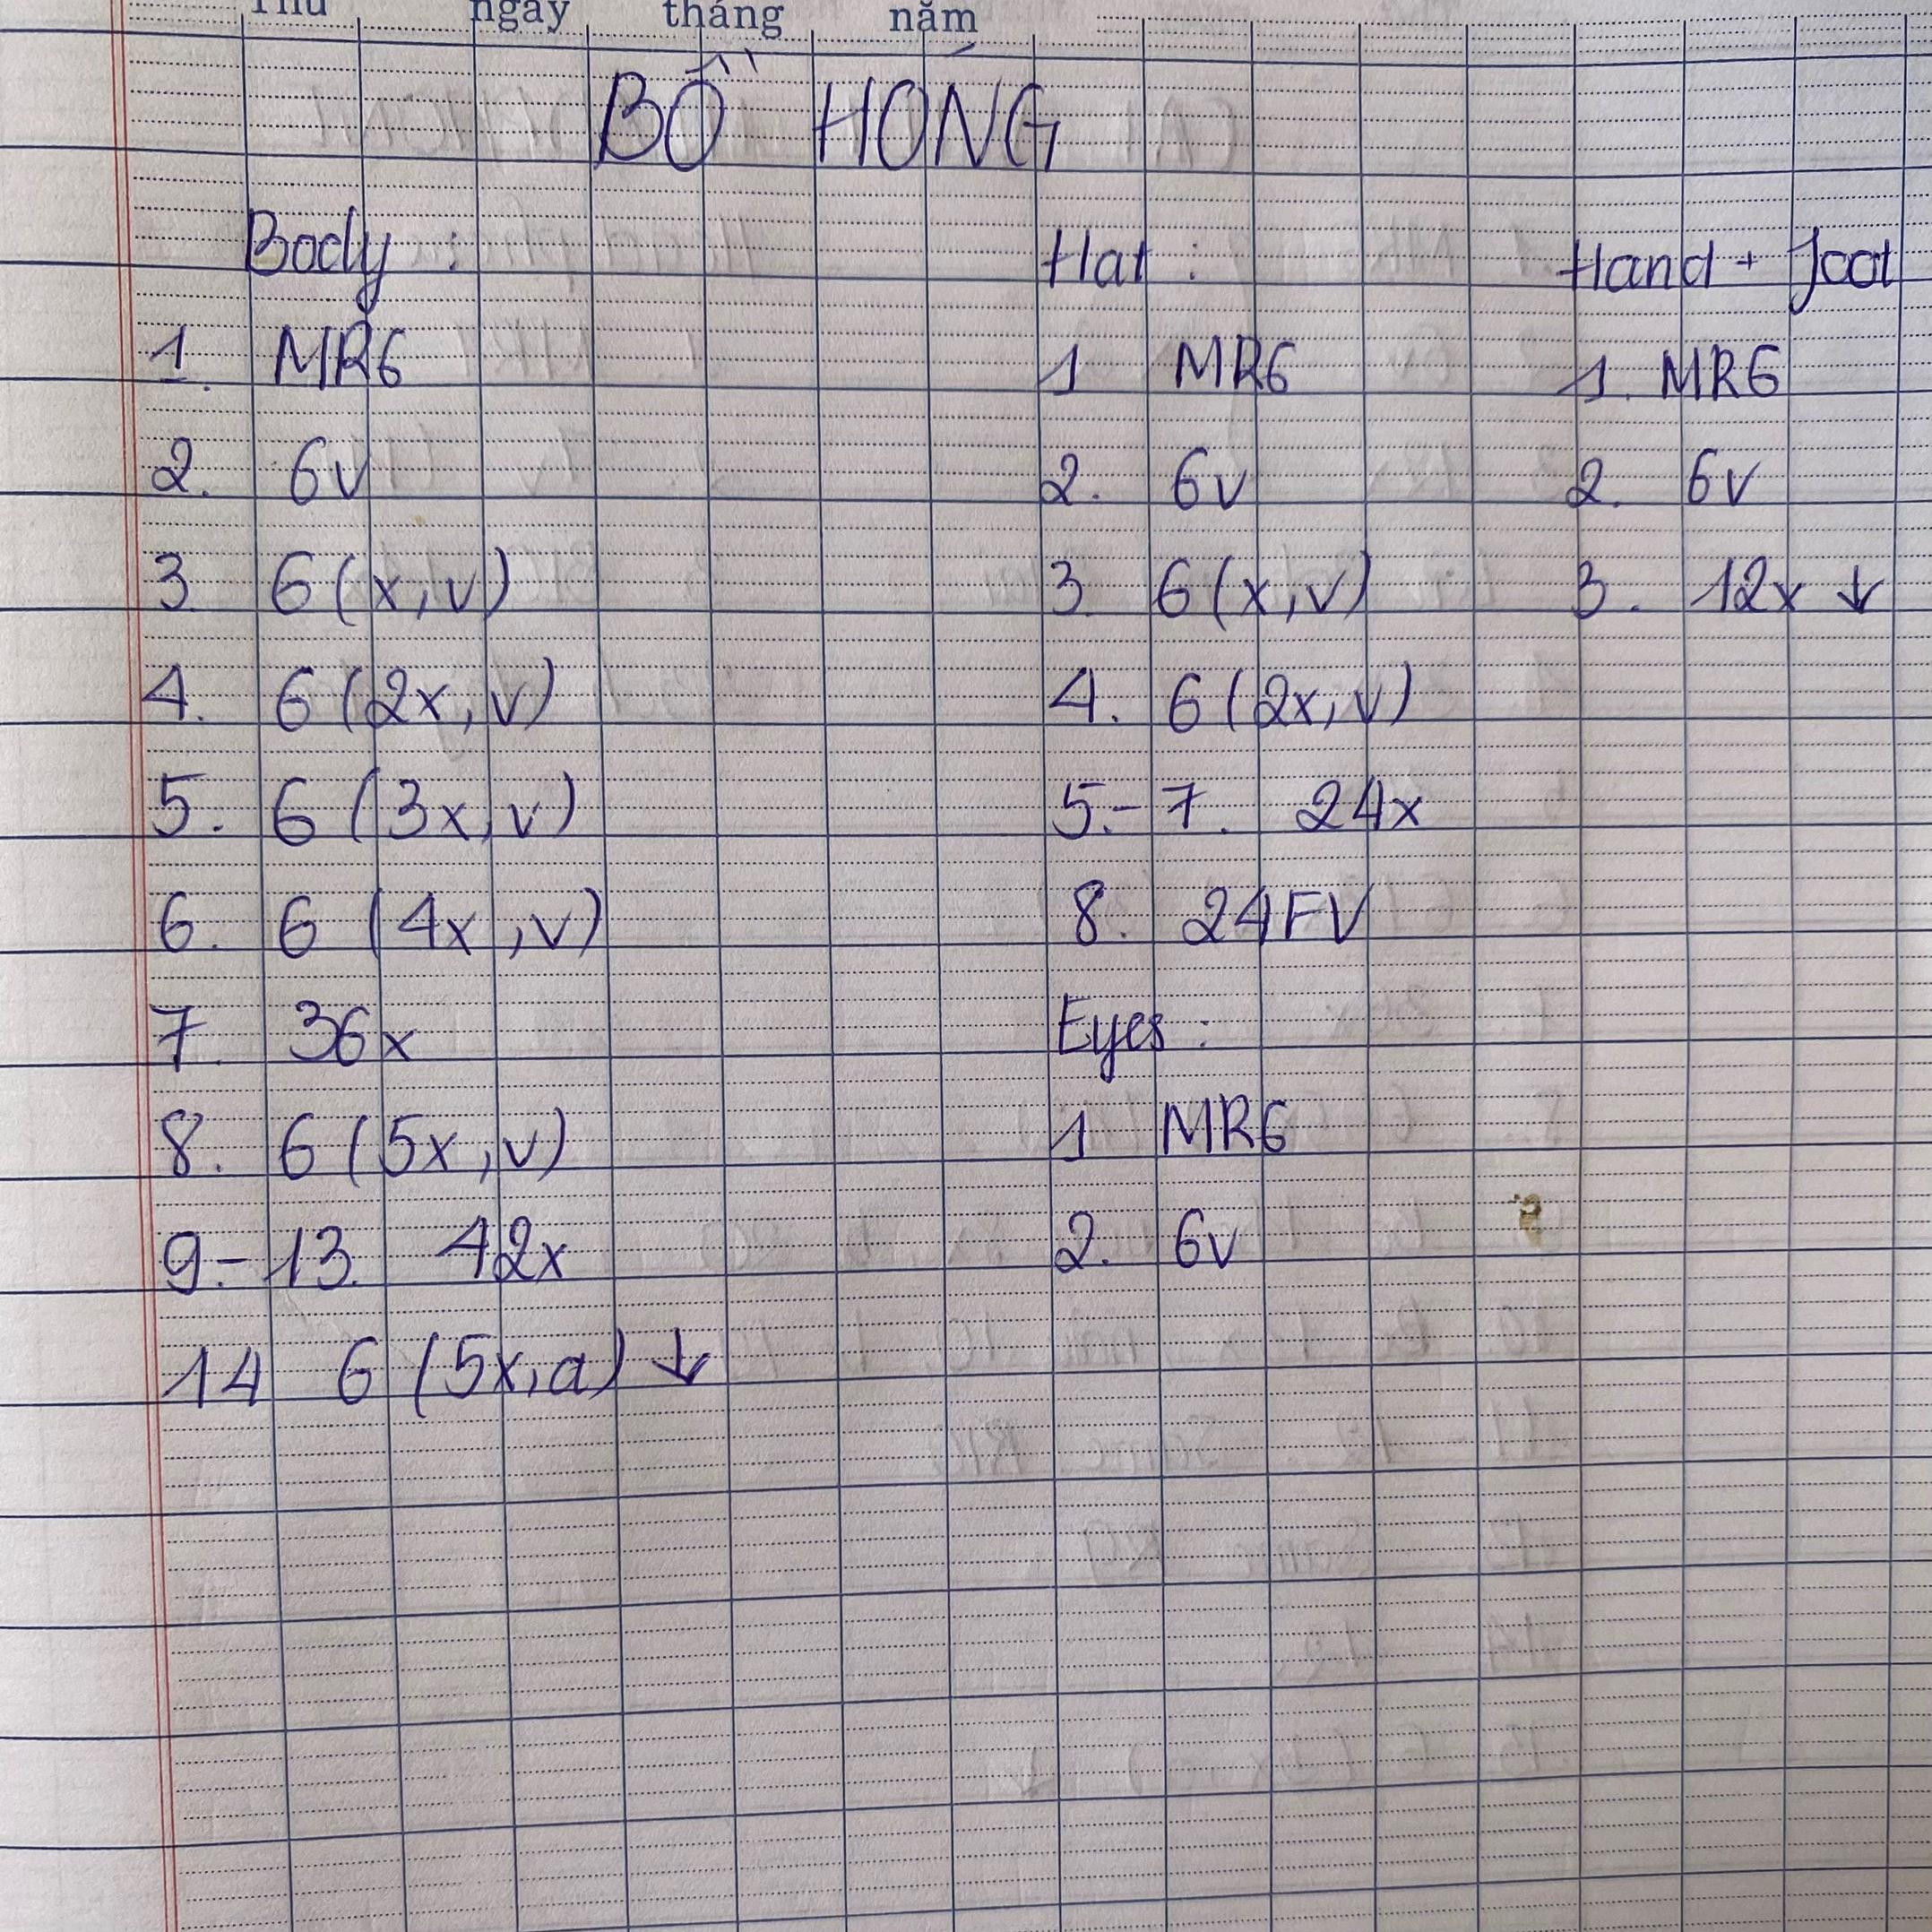 Thứ ngày tháng năm
BỒ HÓNG
Body :
1. MR6
2. 6v
3. 6 (x, v)
4. 6 (2x, v)
5. 6 (3x, v)
6. 6 (4x, v)
7. 36x
8. 6 (5x, v)
9.- 13. 42x
14 6 (5x, a) ↓
Hat :
1 MR6
2. 6v
3. 6 (x, v)
4. 6 (2x, v)
5.- 7. 24x
8. 24FV
Eyes :
1 MR6
2. 6v
Hand + Foot
1. MR6
2. 6v
3. 12x ↓